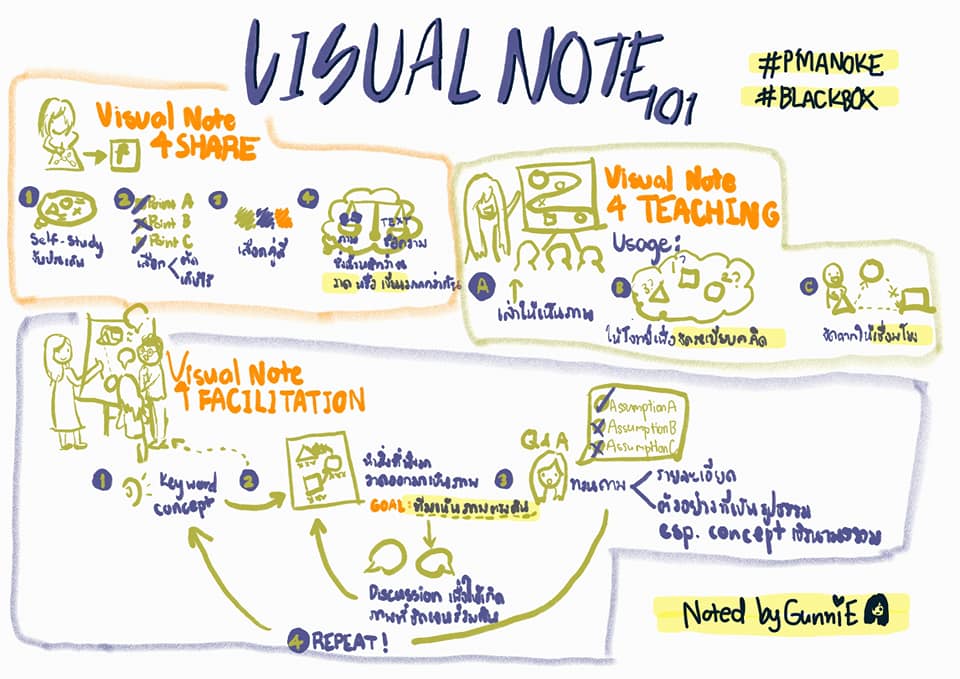 VISUAL NOTE 101
#P'MANOKE
#BLACKBOX
Visual Note
4 SHARE
f
1
Self-Study
จับประเด็น
2
Point A
Point B
Point C
เลือก
ตัด
เก็บไว้
3
เลือกคู่สี
4
TEXT
ภาพ
ข้อความ
วาด หรือ เขียนมากกว่ากัน
Visual Note
4 TEACHING
Usage:
A
เล่าให้เห็นภาพ
B
ให้โจทย์เพื่อ จัดระเบียบความคิด
C
วาดให้เชื่อมโยง
Visual Note
4 FACILITATION
1
Key word
concept
2
นำสิ่งที่ฟังมา
วาดออกมาเป็นภาพ
GOAL: ทีมเห็นภาพตรงกัน
Discussion เพื่อให้เกิด
ภาพที่ชัดเจนร่วมกัน
3
Q&A
Assumption A
Assumption B
Assumption C
ทวนถาม
รายละเอียด
ตัวอย่างที่เป็นรูปธรรม
esp. concept เชิงนามธรรม
4 REPEAT!
Noted by GunniE